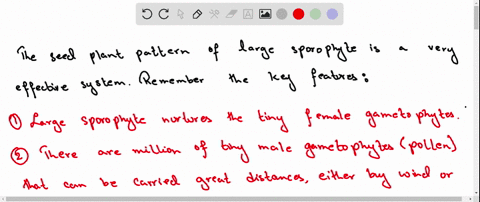 The seed plant pattern of large sporophyte is a very
effective system. Remember the key features:
① Large sporophyte nurtures the tiny female gametophytes.
② There are million of tiny male gametophytes (pollen)
that can be carried great distances, either by wind or